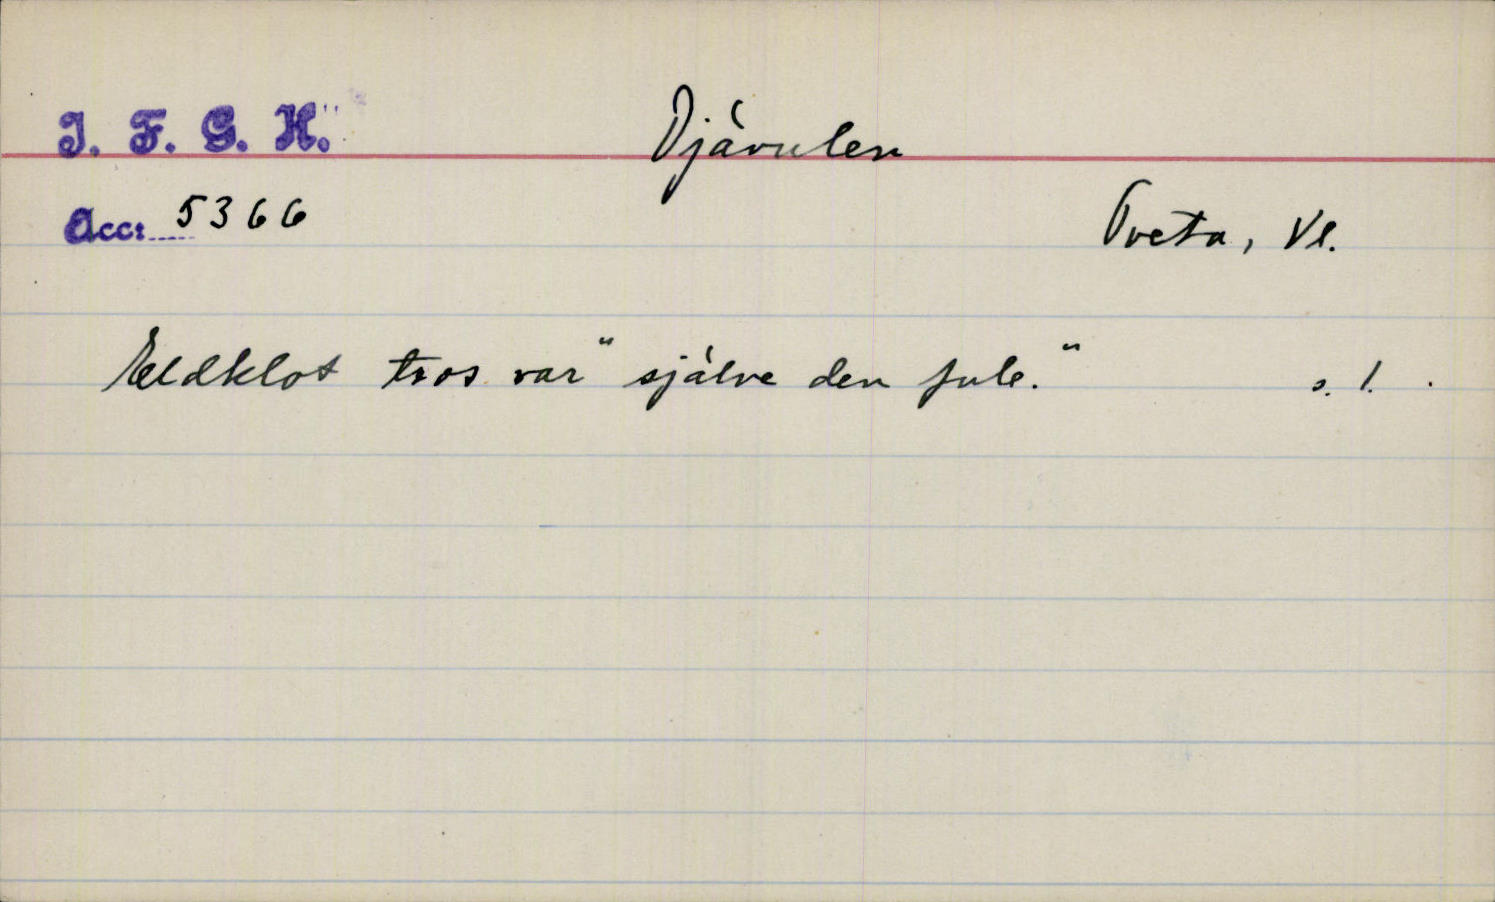 I. F. G. H. Djävulen
Acc: 5366
Tveta, Vl.
Eldklot tros var "själve den fule." s. 1.